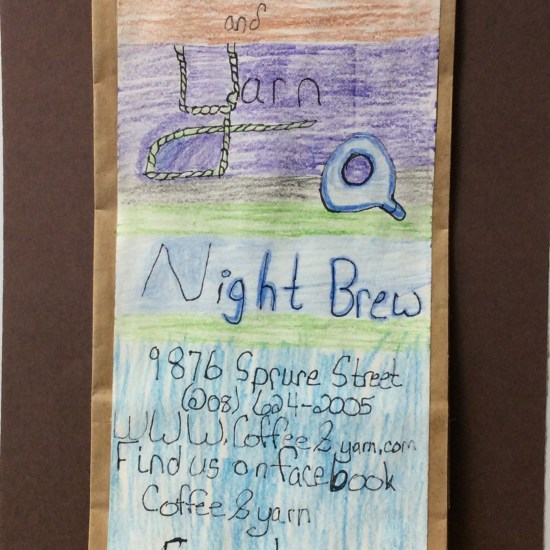 and
Yarn
Night Brew
9876 Sprure Street
(208) 624-2005
WWW.Coffee&yarn.com
Find us on facebook
Coffee & yarn